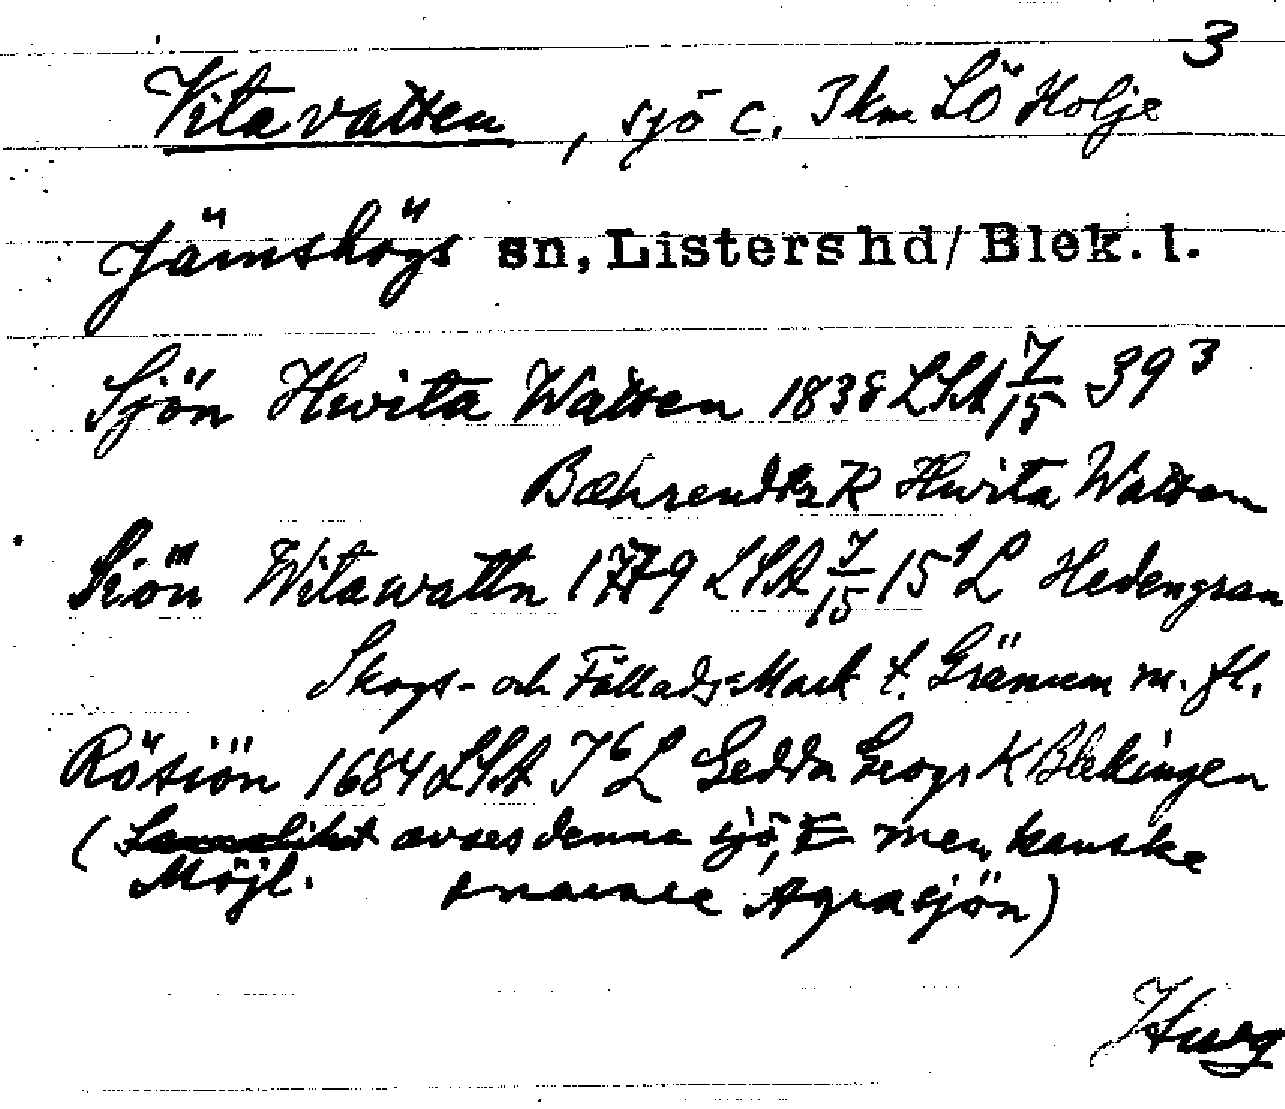 3
Vitavatten, sjö c. 3 km LÖ Holje
Jämshögs sn, Listers hd/Blek. l.
Sjön Hwita Watten 1838 LSA 7/15 39³
Bæhrendtz K Hwita Watten
Siön Witawattn 1779 LSA 7/15 15¹ L Hedengran
Skogs- och Fällads-Mark t. Gränum m. fl.
Rösiön 1684 LSA I⁶ L Gedda Geogr K Blekingen
( avses denna sjö, men kanske
Möjl. snarare Agrasjön)